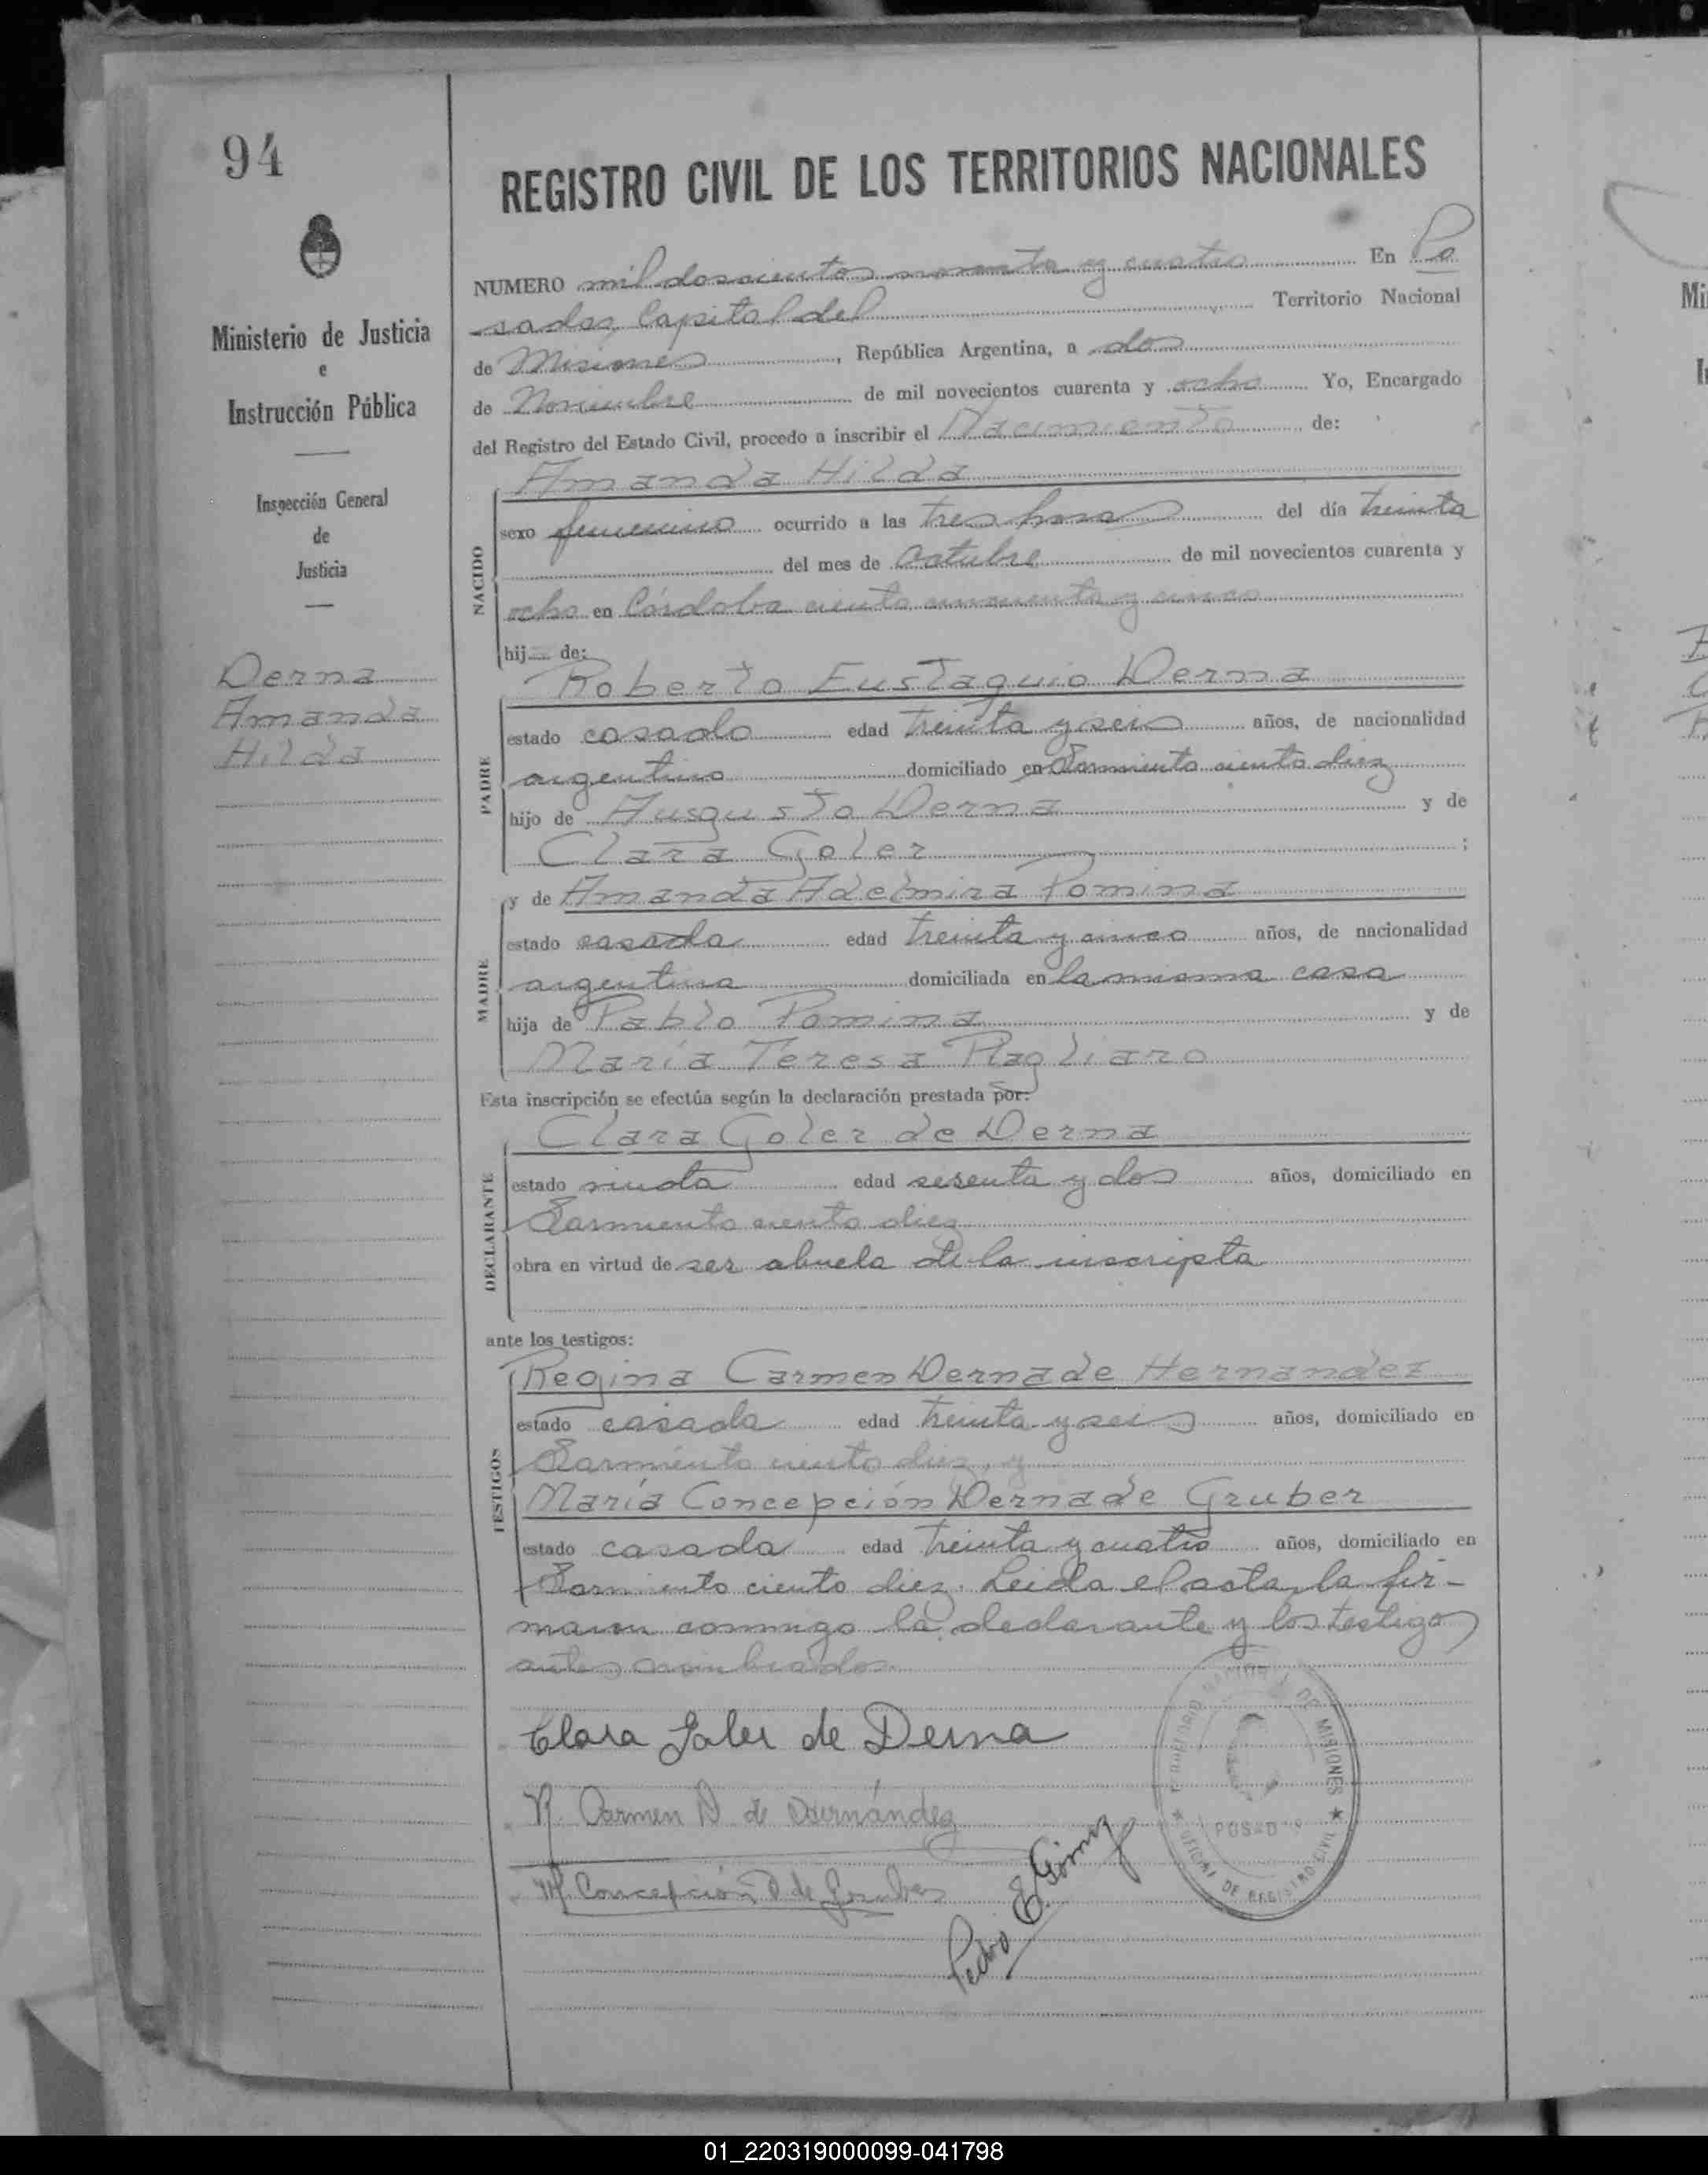 94
Ministerio de Justicia
e
Instrucción Pública
Inspección General
de
Justicia
Derna
Amanda
Hilda
REGISTRO CIVIL DE LOS TERRITORIOS NACIONALES
NUMERO mil doscientos noventa y cuatro En Po
sadas, Capital del Territorio Nacional
de Misiones, República Argentina, a dos
de Noviembre de mil novecientos cuarenta y ocho Yo, Encargado
del Registro del Estado Civil, procedo a inscribir el Nacimiento de:
Amanda Hilda
NACIDO
sexo femenino ocurrido a las tres horas del día treinta
del mes de Octubre de mil novecientos cuarenta y
ocho en Córdoba ciento cincuenta y cinco
hij de:
Roberto Eustaquio Derna
PADRE
estado casado edad treinta y seis años, de nacionalidad
argentino domiciliado en Sarmiento ciento diez
hijo de Augusto Derna y de
Clara Goler ;
y de Amanda Adelmira Pomina
MADRE
estado casada edad treinta y cinco años, de nacionalidad
argentina domiciliada en la misma casa
hija de Pablo Pomina y de
María Teresa Plagliaro
Esta inscripción se efectúa según la declaración prestada por:
Clara Goler de Derna
DECLARANTE
estado viuda edad sesenta y dos años, domiciliado en
Sarmiento ciento diez
obra en virtud de ser abuela de la inscripta
ante los testigos:
Regina Carmen Derna de Hernandez
TESTIGOS
estado casada edad treinta y seis años, domiciliado en
Sarmiento ciento diez, y
María Concepción Derna de Gruber
estado casada edad treinta y cuatro años, domiciliado en
Sarmiento ciento diez. Leida el acta, la fir-
man conmigo la declarante y los testigos
antes nombrados.
Clara Goler de Derna
R. Carmen D. de Hernández
M. Concepción D. de Gruber
Pedro E. Gómez
DE MISIONES
POSADAS
OFICINA DE REGISTRO CIVIL
01_220319000099-041798